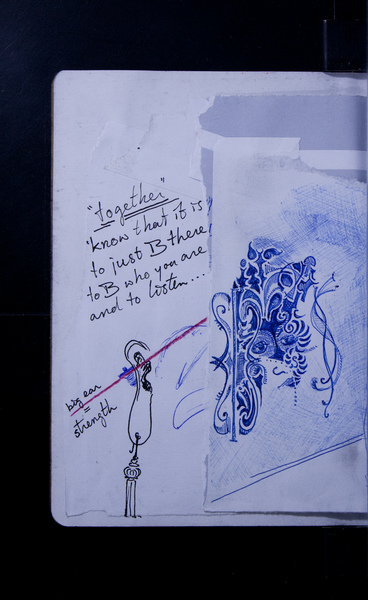 "together"
"know that it is
to just B there
to B who you are
and to listen...
big ear
=
strength